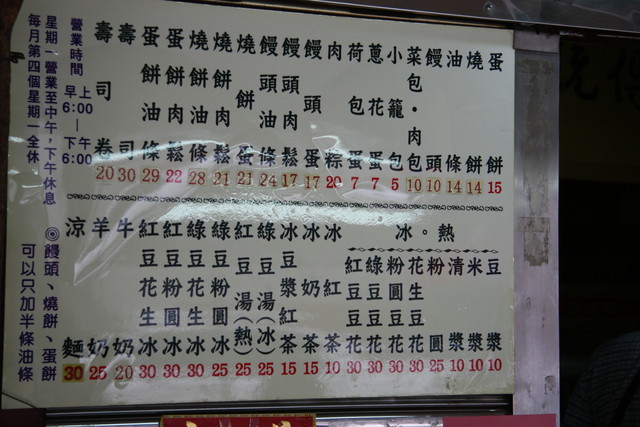 蛋餅 15
燒餅 14
油條 14
饅頭 10
菜包·肉包 10
小籠包 5
蔥花蛋 7
荷包蛋 7
肉粽 20
饅頭蛋 17
饅頭肉鬆 17
饅頭油條 24
燒餅蛋 21
燒餅肉鬆 21
燒餅油條 28
蛋餅肉鬆 22
蛋餅油條 29
壽司 30
壽司卷 20
冰。熱
豆漿 10
米漿 10
清漿 10
粉圓 25
花生豆花 30
粉圓豆花 30
綠豆豆花 30
紅豆豆花 30
冰紅茶 10
冰奶茶 15
冰豆漿紅茶 15
綠豆湯(冰) 25
紅豆湯(熱) 25
綠豆粉圓冰 25
綠豆花生冰 30
紅豆粉圓冰 30
紅豆花生冰 30
牛奶 20
羊奶 25
涼麵 30
營業時間 早上6:00|下午6:00
星期一營業至中午,下午休息
每月第四個星期一全休
◎饅頭、燒餅、蛋餅
可以只加半條油條